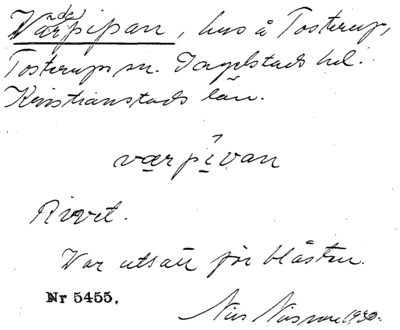 Värpipan, hus å Tosterup,
Tosterups sn. Ingelstads hd.
Kristianstads län.
værpìvan
Rivet.
Var utsatt för blåsten.
Nr 5455.
Nils Nilsson 1930.